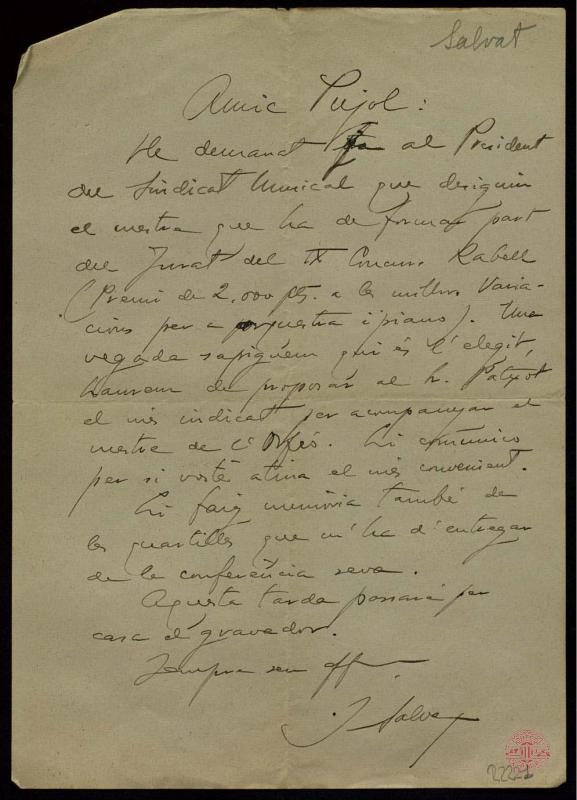 Salvat
Amic Pujol:
He demanat ja al President
del Sindicat Musical que designin
el mestre que ha de formar part
del Jurat del IX Concurs Rabell
(Premi de 2.000 pts. a les millors Varia-
cions per a orquestra i piano). Una
vegada sapiguém qui és l'elegit,
haurem de proposar al Sr. Patxot
el més indicat per acompanyar el
mestre de l'Orfeó. Li comunico
per si vostè atina el més convenient.
Li faig memòria també de
les quartilles que m'ha d'entregar
de la conferència seva.
Aquesta tarda passaré per
casa el gravador.
Sempre seu affm.
J. Salvat